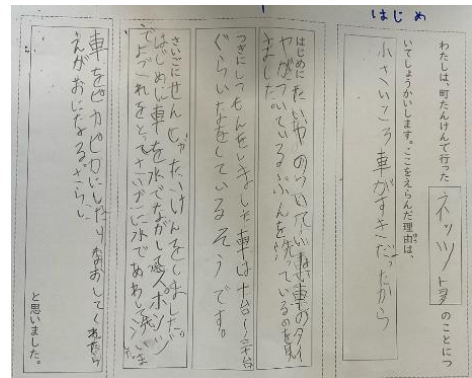 はじめ
わたしは、町たんけんで行った ネッツトヨタ のことにつ
いてしょうかいします。ここをえらんだ理由は、
小さいころ車がすきだったから
はじめに
タイヤがついているぶぶんを洗っているのを見
ました。
つぎにしつもんをしました車は十台～二十台
ぐらいなをしているそうです。
さいごにせんしゃたいけんをしました。
はじめに車を水でながし
スポンジ
でよごれをとってさいごに水であわを
車をピカピカにしたりなおしてくれたら
えがおになるさらし
と思いました。